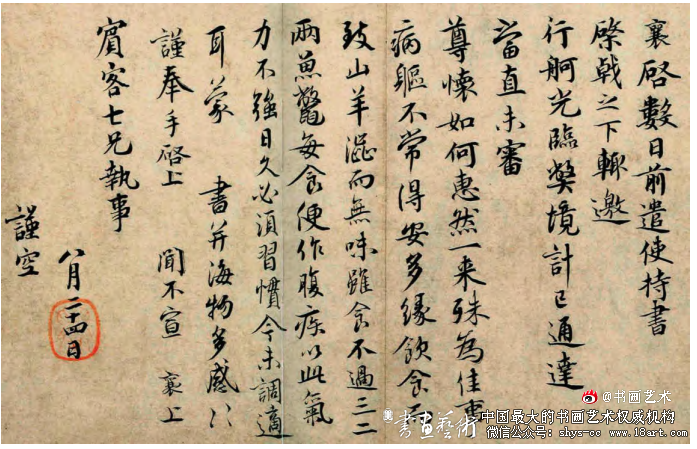 襄啓數日前遣使持書
棨戟之下輙邀
行舸光臨獘境計已通達
當直未審
尊懷如何惠然一来殊為佳
病軀不常得安多縁飲食
致山羊澁而無味雖食不過三二
兩魚鼈每食便作腹疾以此氣
力不強日久必須習慣今未調適
耳蒙 書并海物多感〻
謹奉手啓上 聞不宣 襄上
賓客七兄執事
八月二十四日
謹空
@书画艺术
書畫藝術
中国最大的书画艺术权威机构
微信公众号: shys-cc www.18art.com